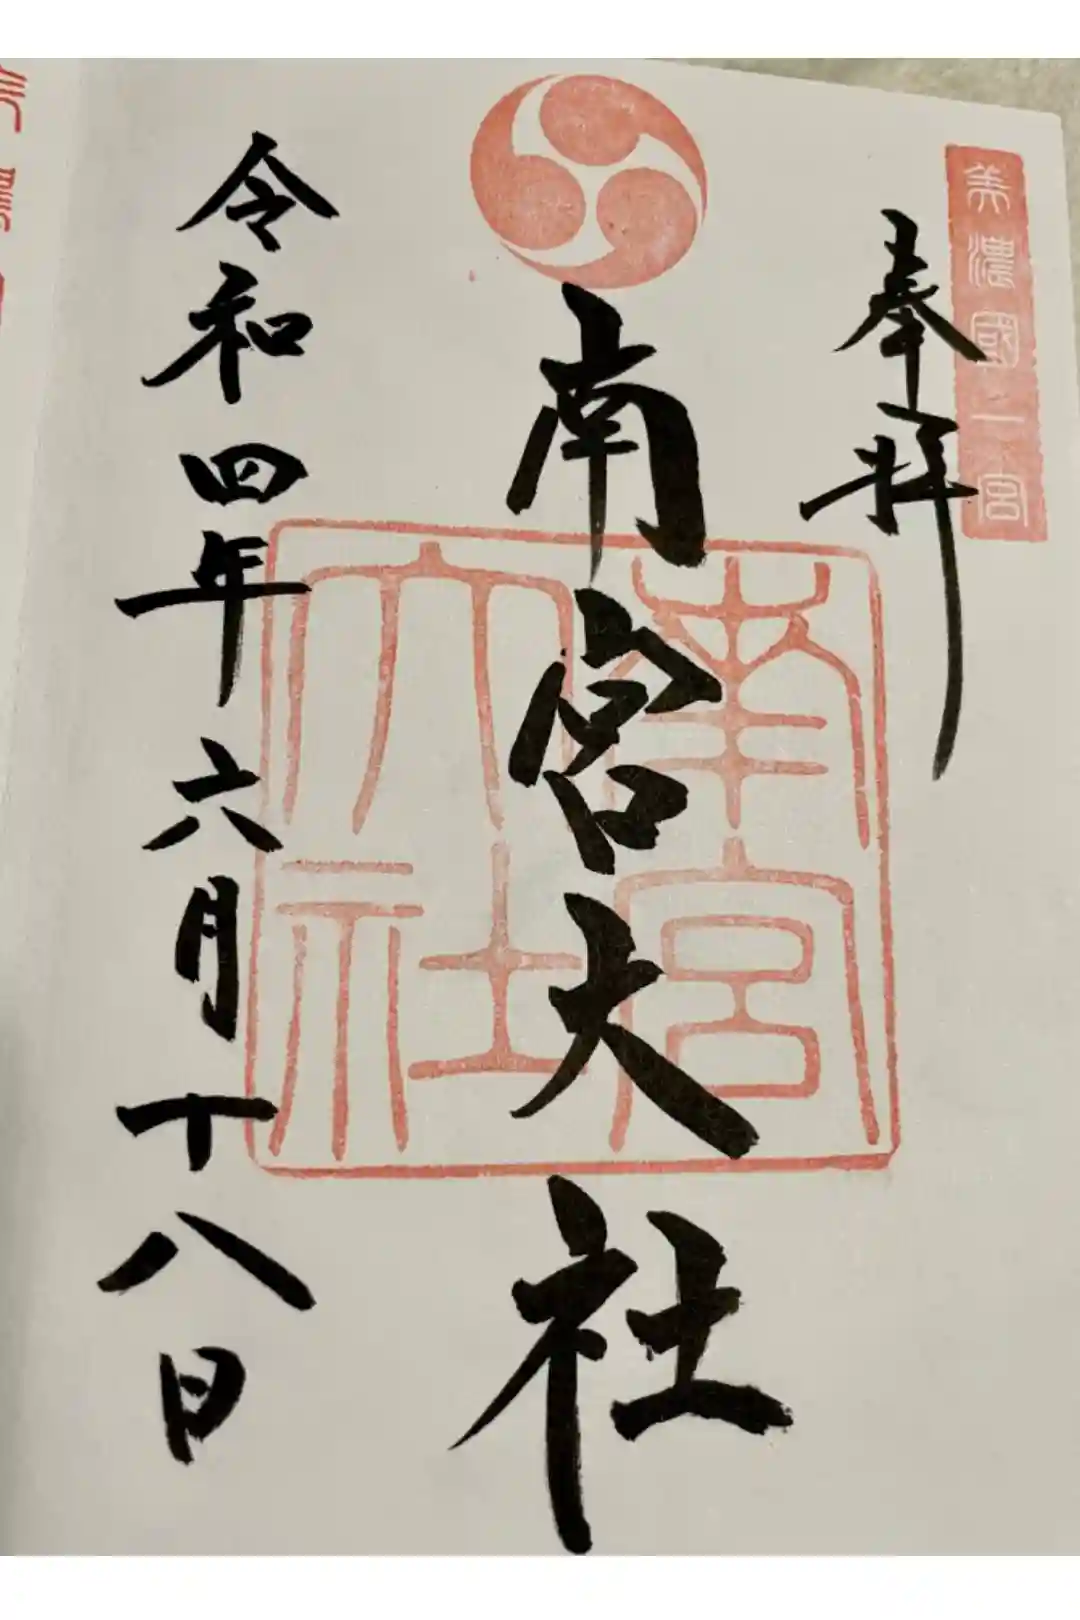 美濃國一宮
奉拝
南宮大社
南宮
大社
令和四年六月十八日